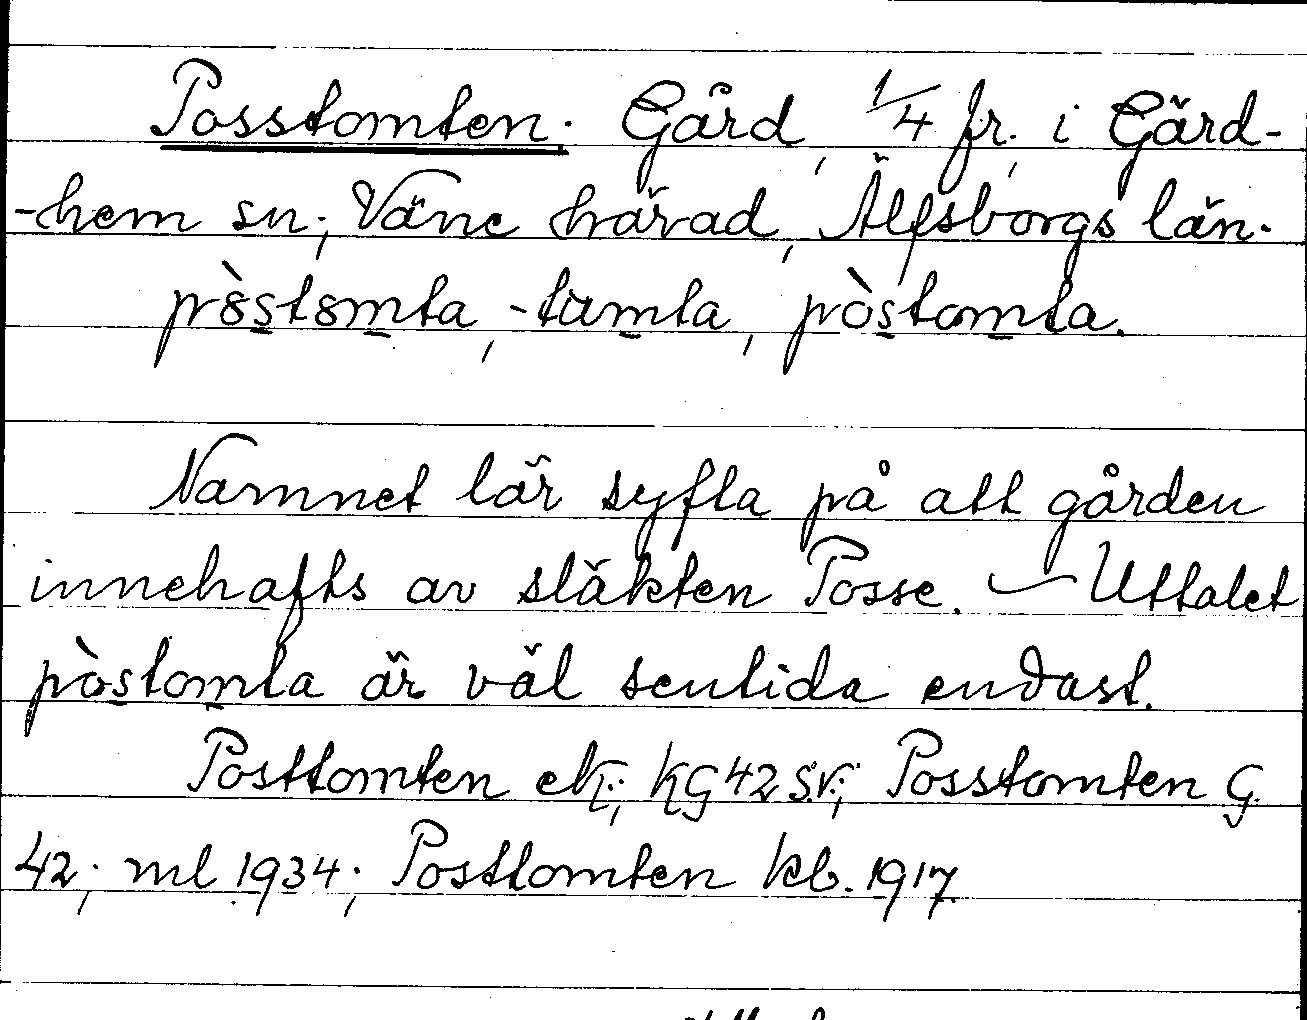 Posstomten. Gård, 1/4 fr., i Gärd-
-hem sn.; Väne härad, Älfsborgs län.
pò̀stomta, -tumta, pòstomta.
Namnet lär syfta på att gården
innehafts av släkten Posse. — Uttalet
pòstomta är väl sentida endast.
Posttomten ek.; KG 42 SV.; Posstomten G
42; ml 1934.; Posttomten kb. 1917.